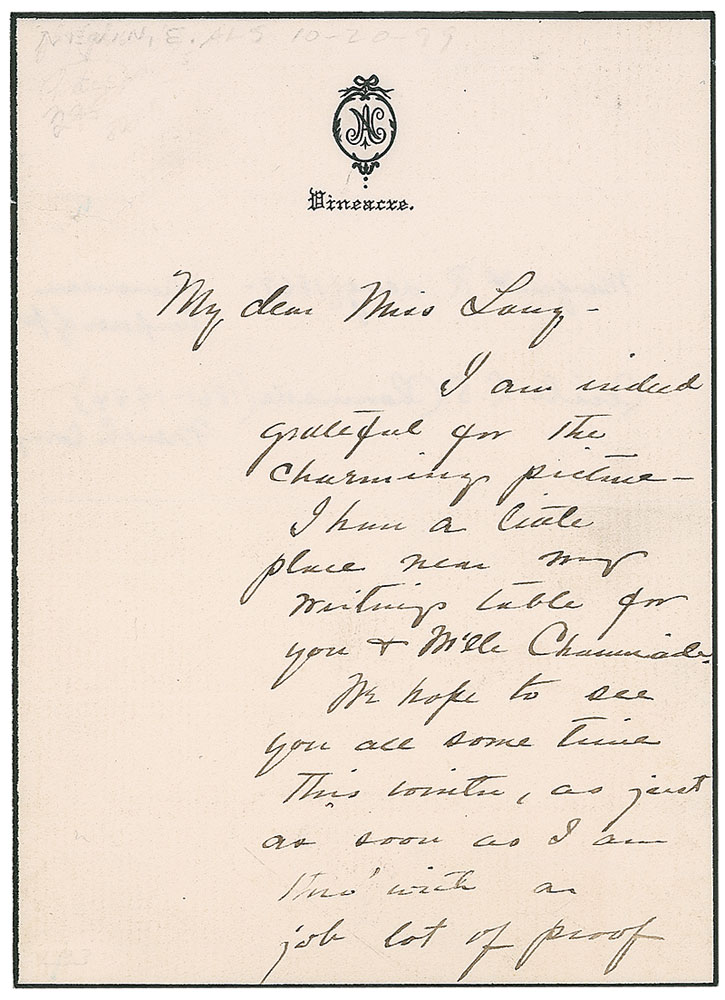 NEVIN, E. ALS 10-20-99
Vineacre.
My dear Miss Lang -
I am indeed
grateful for the
charming picture -
I have a little
place near my
writing table for
you & M'lle Chaminade.
We hope to see
you all some time
this winter, as just
as soon as I am
thro' with a
job lot of proof